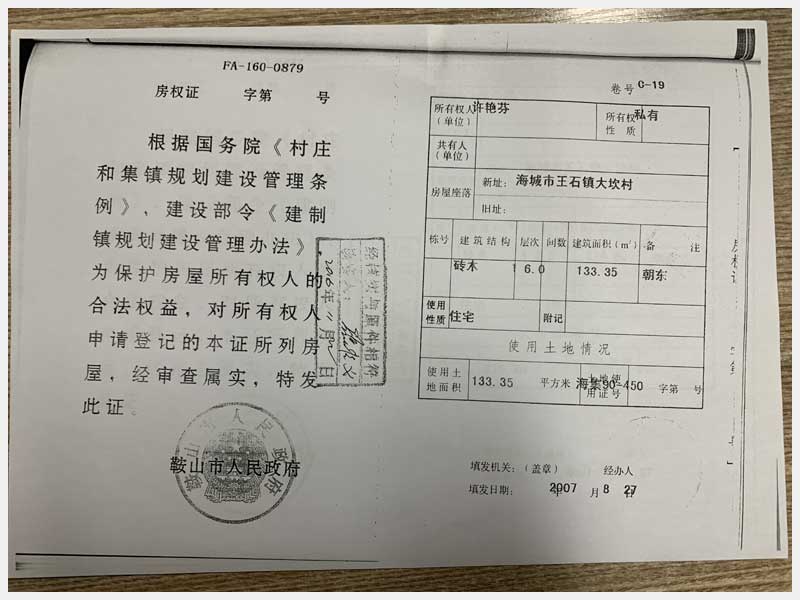 FA-160-0879
房权证 字第 号
根据国务院《村庄
和集镇规划建设管理条
例》、建设部令《建制
镇规划建设管理办法》，
为保护房屋所有权人的
合法权益，对所有权人
申请登记的本证所列房
屋，经审查属实，特发
此证。
鞍山市人民政府
鞍山市人民政府
经核对与原件相符
2006年11月 日
卷号 C-19
所有权人（单位） 许艳芬 所有权性质 私有
共有人（单位）
房屋座落 新址：海城市王石镇大坎村
旧址：
栋号 建筑结构 层次 间数 建筑面积（m²） 备注
砖木 1 6.0 133.35 朝东
使用性质 住宅 附记
使用土地情况
使用土地面积 133.35 平方米 土地使用证号 海集90-450 字第 号
填发机关：（盖章） 经办人
填发日期： 2007 年 8 月 27 日